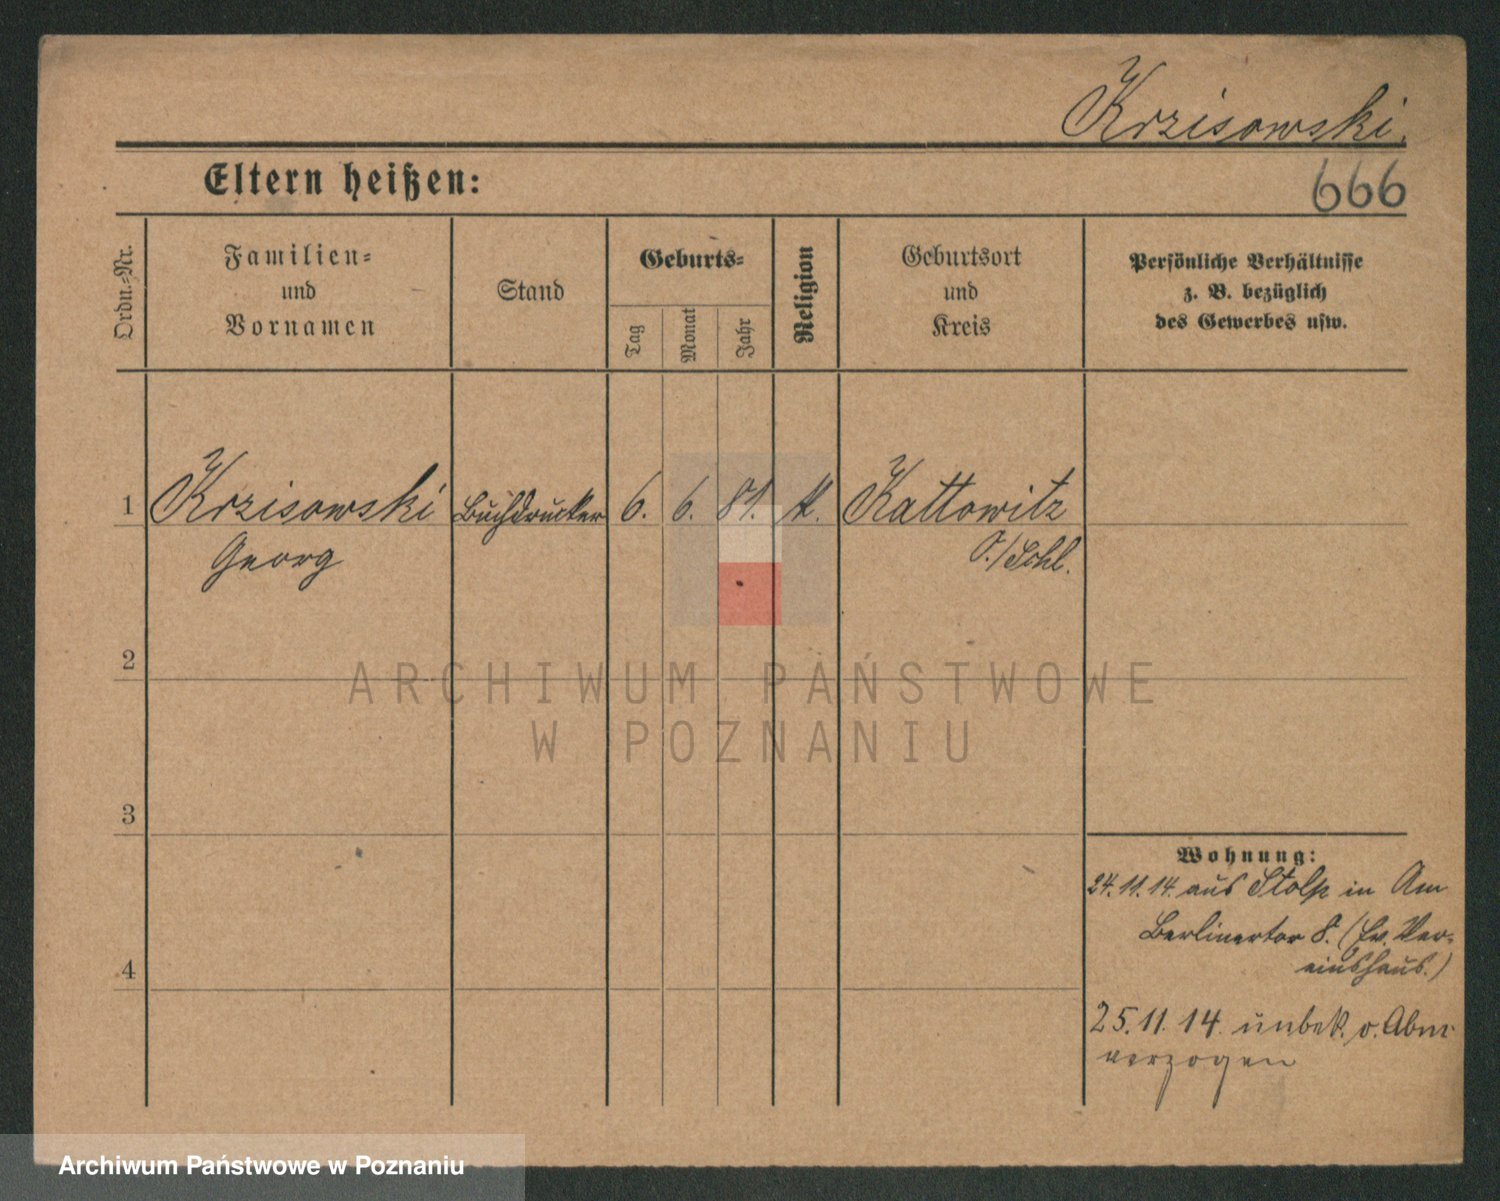 Krzisowski.
Eltern heißen:
666
Ordn.-Nr.
Familien-
und
Vornamen
Stand
Geburts-
Tag
Monat
Jahr
Religion
Geburtsort
und
Kreis
Persönliche Verhältnisse
z. B. bezüglich
des Gewerbes usw.
1 Krzisowski Buchdrucker 6. 6. 81. k. Kattowitz
Georg O./Schl.
2
ARCHIWUM PAŃSTWOWE
W POZNANIU
3
Wohnung:
24.11.14. aus Stolp in Am
Berlinertor 8. (Ev. Ver-
einshaus.)
4
25.11.14. unbek. o. Abm
verzogen
Archiwum Państwowe w Poznaniu